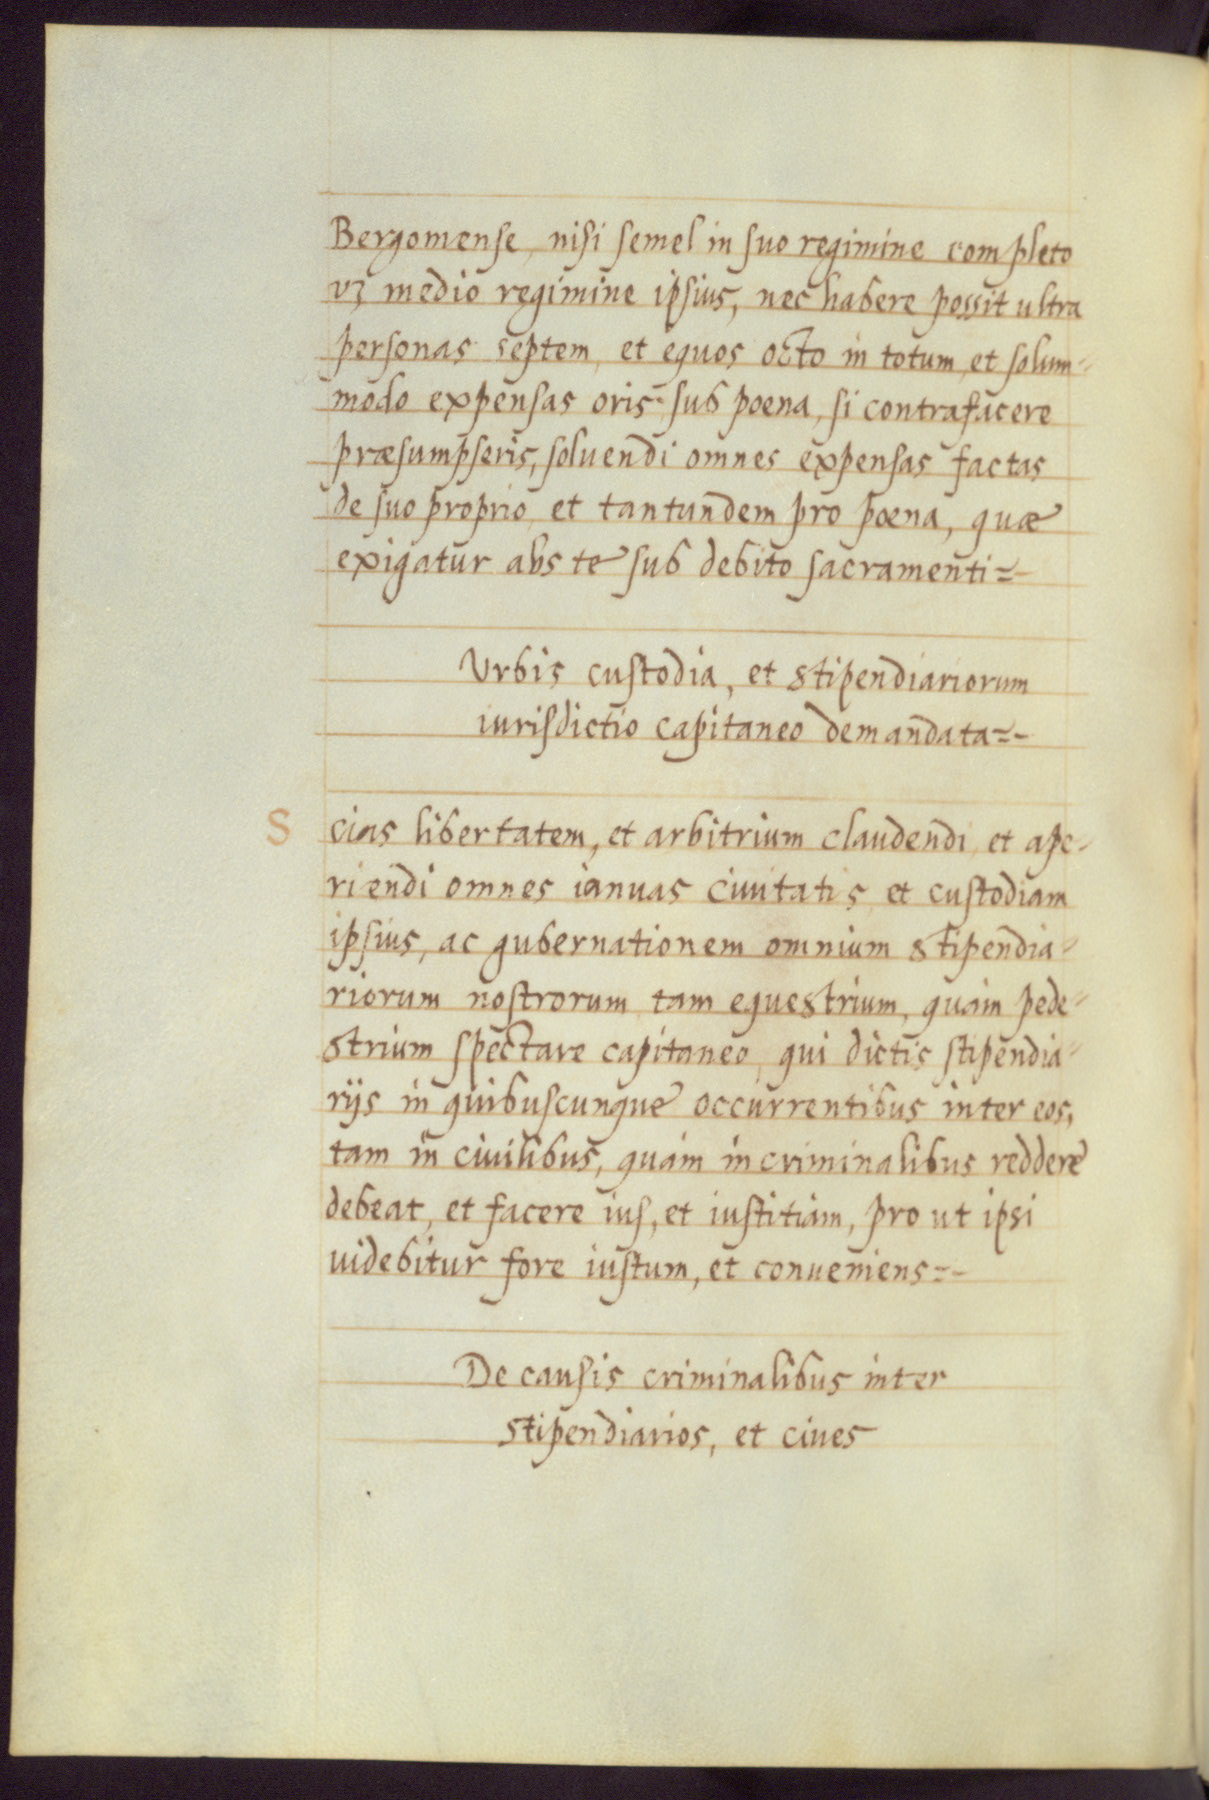 Bergomense, nisi semel in suo regimine completo
vz medio regimine ipsius, nec habere possit ultra
personas septem, et equos octo in totum, et solum-
modo expensas oris: sub poena, si contrafacere
præsumpseris, soluendi omnes expensas factas
de suo proprio, et tantundem pro poena, quæ
exigatur abs te sub debito sacramenti=-
Urbis custodia, et stipendiariorum
iurisdictio capitaneo demandata=-
S cias libertatem, et arbitrium claudendi, et ape-
riendi omnes ianuas ciuitatis, et custodiam
ipsius, ac gubernationem omnium stipendia-
riorum nostrorum, tam equestrium, quàm pede-
strium spectare capitaneo, qui dictis stipendia-
rijs in quibuscunque occurrentibus inter eos,
tam in ciuilibus, quàm in criminalibus reddere
debeat, et facere ius, et iustitiam, pro ut ipsi
uidebitur fore iustum, et conueniens=-
De causis criminalibus inter
stipendiarios, et ciues